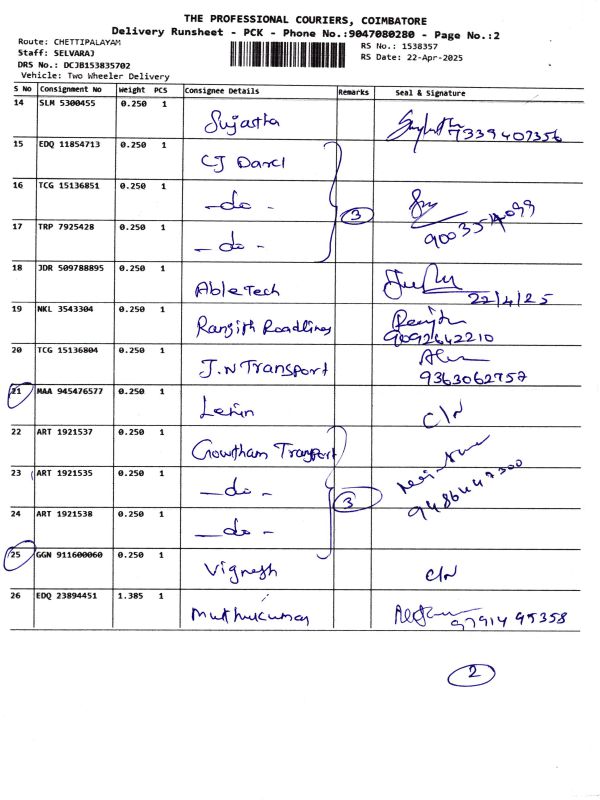 THE PROFESSIONAL COURIERS, COIMBATORE
Delivery Runsheet - PCK - Phone No.:9047080280 - Page No.:2
Route: CHETTIPALAYAM
Staff: SELVARAJ
DRS No.: DCJB153835702
Vehicle: Two Wheeler Delivery
RS No.: 1538357
RS Date: 22-Apr-2025
S No Consignment No Weight PCS Consignee Details Remarks Seal & Signature
14 SLM 5300455 0.250 1 Sujastha 7339407356
15 EDQ 11854713 0.250 1 CJ Darcl
16 TCG 15136851 0.250 1 - do - 3
17 TRP 7925428 0.250 1 - do -
18 JDR 509788895 0.250 1 Able Tech 22/4/25
19 NKL 3543304 0.250 1 Ranjith Roadlines 9092642210
20 TCG 15136804 0.250 1 J.N Transport 9363062757
21 MAA 945476577 0.250 1 Lenin C/N
22 ART 1921537 0.250 1 Gowtham Transport
23 ART 1921535 0.250 1 - do - 3 9486447300
24 ART 1921538 0.250 1 - do -
25 GGN 911600060 0.250 1 Vignesh C/N
26 EDQ 23894451 1.385 1 Muthukumar 9791495358
2